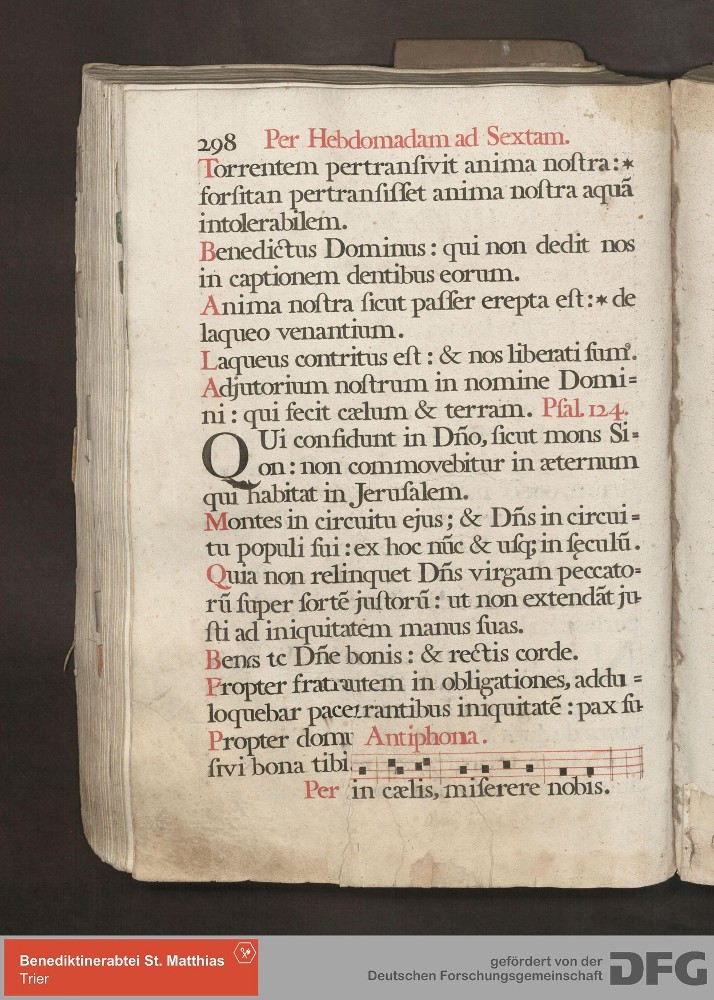 298 Per Hebdomadam ad Sextam.
Torrentem pertranſivit anima noſtra:*
forſitan pertranſiſſet anima noſtra aquã
intolerabilem.
Benedictus Dominus: qui non dedit nos
in captionem dentibus eorum.
Anima noſtra ſicut paſſer erepta eſt:* de
laqueo venantium.
Laqueus contritus eſt: & nos liberati ſumꝰ.
Adjutorium noſtrum in nomine Domi=
ni: qui fecit cælum & terram. Pſal. 124.
QUi confidunt in Dño, ſicut mons Si=
on: non commovebitur in æternum
qui habitat in Jeruſalem.
Montes in circuitu ejus; & Dñs in circui=
tu populi ſui: ex hoc nũc & uſq; in ſęculũ.
Quia non relinquet Dñs virgam peccato=
rũ ſuper ſortẽ juſtorũ: ut non extendãt ju-
ſti ad iniquitatem manus ſuas.
Dñe bonis: & rectis corde.
Propter in obligationes, addu=
loquebar iniquitatẽ: pax ſu-
Propter Antiphona.
ſivi bona tibi
Per in cælis, miſerere nobis.
Benediktinerabtei St. Matthias
Trier
gefördert von der
Deutschen Forschungsgemeinschaft
DFG